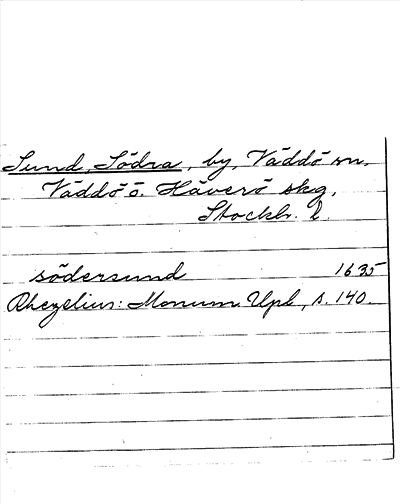 Sund, Södra, by, Väddö sn.
Väddö o. Häverö skg,
Stockh. l.
södersund 1635
Rhezelius: Monum. Upl, s. 140.